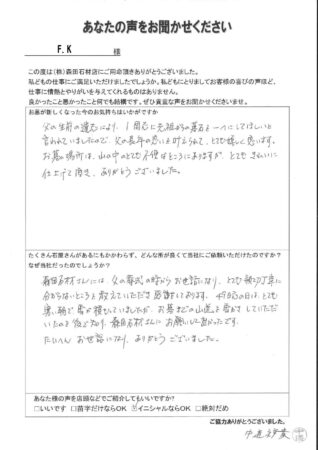 あなたの声をお聞かせください
F.K 様
この度は(株)森田石材店にご用命頂きありがとうございました。
私どもの仕事にご満足いただけましたでしょうか。私どもにとりましてお客様の喜びの声ほど、
仕事に情熱とやりがいを与えてくれるものはありません。
良かったこと悪かったこと何でも結構です。ぜひ貴重な声をお聞かせくださいませ。
お墓が新しくなった今のお気持ちはいかがですか
父の生前の遺志により、1周忌に先祖からの墓石を一つにしてほしいと
言われていましたので、父の長年の思いを叶えられて、とても嬉しく思います。
お墓の場所は、山の中のとても不便なところにありますが、とてもきれいに
仕上げて頂き、ありがとうございました。
たくさん石屋さんがあるにもかかわらず、どんな所が良くて当社にご依頼いただけたのですか?
なぜ当社だったのでしょうか?
森田石材さんには、父の葬式の時からお世話になり、とても親切丁寧に
分からないところを教えていただき感謝しております。49日の日は、とても
寒い朝で雪が積もっていましたが、お墓までの山道を雪かきしていただ
いたのを後で知り、森田石材さんにお願いして良かったです。
たいへんお世話になり、ありがとうございました。
あなた様の声を店頭などでご紹介してもいいですか?
□いいです □苗字だけならOK ☑イニシャルならOK □絶対だめ
ご協力ありがとうございました。